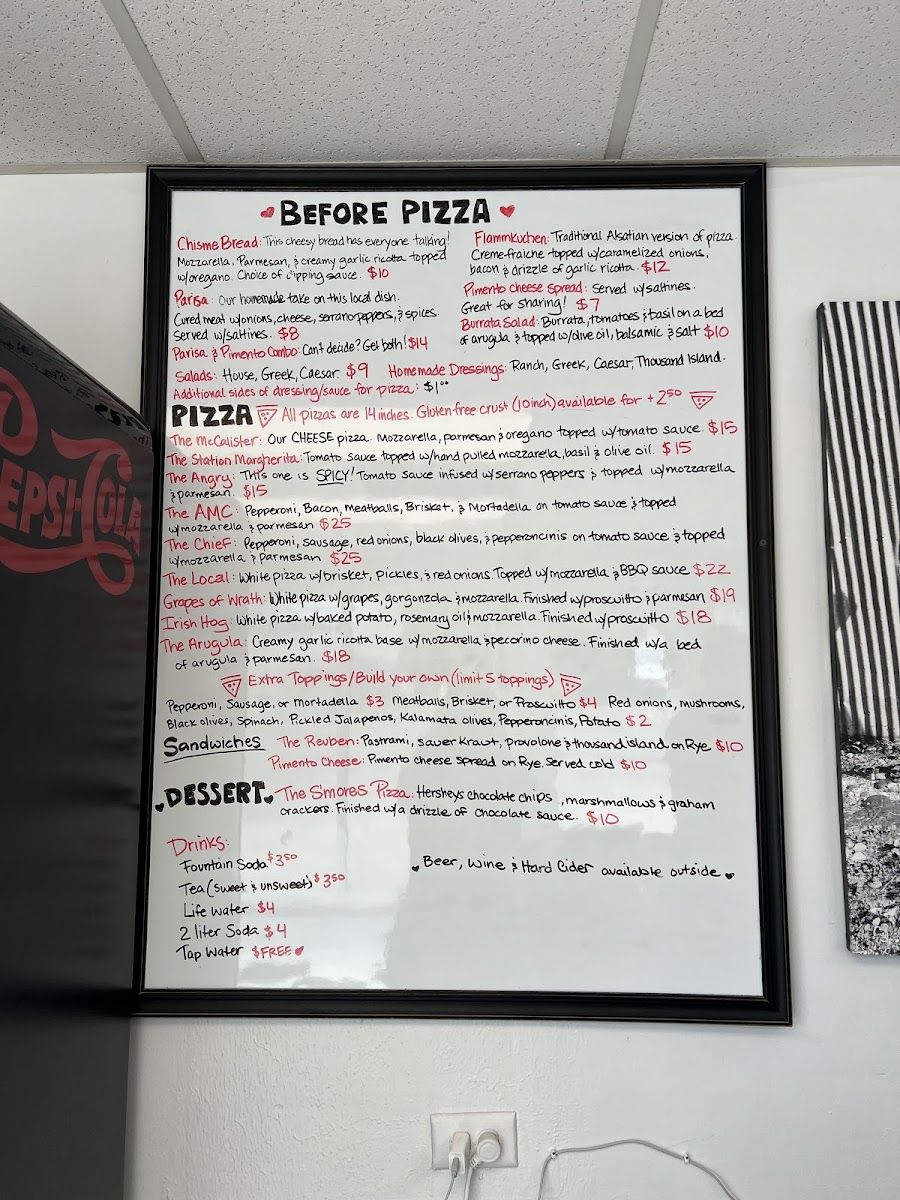 BEFORE PIZZA
Chisme Bread: This cheesy bread has everyone talking!
Mozzarella, Parmesan, & creamy garlic ricotta topped
w/oregano. Choice of dipping sauce. $10
Parisa: Our homemade take on this local dish.
Cured meat w/onions, cheese, serrano peppers, & spices.
Served w/saltines. $8
Parisa & Pimento Combo: Can't decide? Get both! $14
Flammkuchen: Traditional Alsatian version of pizza.
Creme-fraiche topped w/caramelized onions,
bacon & drizzle of garlic ricotta $12
Pimento cheese spread: Served w/saltines.
Great for sharing! $7
Burrata Salad: Burrata, tomatoes & basil on a bed
of arugula & topped w/olive oil, balsamic & salt $10
Salads: House, Greek, Caesar $9 Homemade Dressings: Ranch, Greek, Caesar, Thousand Island.
Additional sides of dressing/sauce for pizza: $1.00
PIZZA All pizzas are 14 inches. Gluten-free crust (10 inch) available for +2.50
The McCalister: Our CHEESE pizza. Mozzarella, parmesan & oregano topped w/tomato sauce. $15
The Station Margherita: Tomato Sauce topped w/hand pulled mozzarella, basil & olive oil. $15
The Angry: This one is SPICY! Tomato Sauce infused w/serrano peppers & topped w/mozzarella
& parmesan. $15
The AMC: Pepperoni, Bacon, Meatballs, Brisket, & Mortadella on tomato sauce & topped
w/mozzarella & parmesan $25
The Chief: Pepperoni, sausage, red onions, black olives, & pepperoncinis on tomato sauce & topped
w/mozzarella & Parmesan $25
The Local: White pizza w/brisket, pickles, & red onions. Topped w/mozzarella & BBQ sauce $22
Grapes of Wrath: White pizza w/grapes, gorgonzola & mozzarella. Finished w/proscuitto & parmesan $19
Irish Hog: White pizza w/baked potato, rosemary oil & mozzarella. Finished w/proscuitto $18
The Arugula: Creamy garlic ricotta base w/mozzarella & pecorino cheese. Finished w/a bed
of arugula & parmesan. $18
Extra Toppings/Build your own (limit 5 toppings)
Pepperoni, Sausage, or Mortadella $3 Meatballs, Brisket, or Proscuitto $4 Red onions, mushrooms,
Black olives, Spinach, Pickled Jalapenos, Kalamata olives, Pepperoncinis, Potato $2
Sandwiches The Reuben: Pastrami, sauer kraut, provolone & thousand island on Rye $10
Pimento Cheese: Pimento cheese spread on Rye. Served cold $10
DESSERT The S'mores Pizza: Hersheys chocolate chips, marshmallows & graham
crackers. Finished w/a drizzle of chocolate sauce. $10
Drinks:
Fountain Soda $3.50
Tea (sweet & unsweet) $3.50
Life Water $4
2 liter Soda $4
Tap Water $FREE
Beer, Wine & Hard Cider available outside
PEPSI-COLA